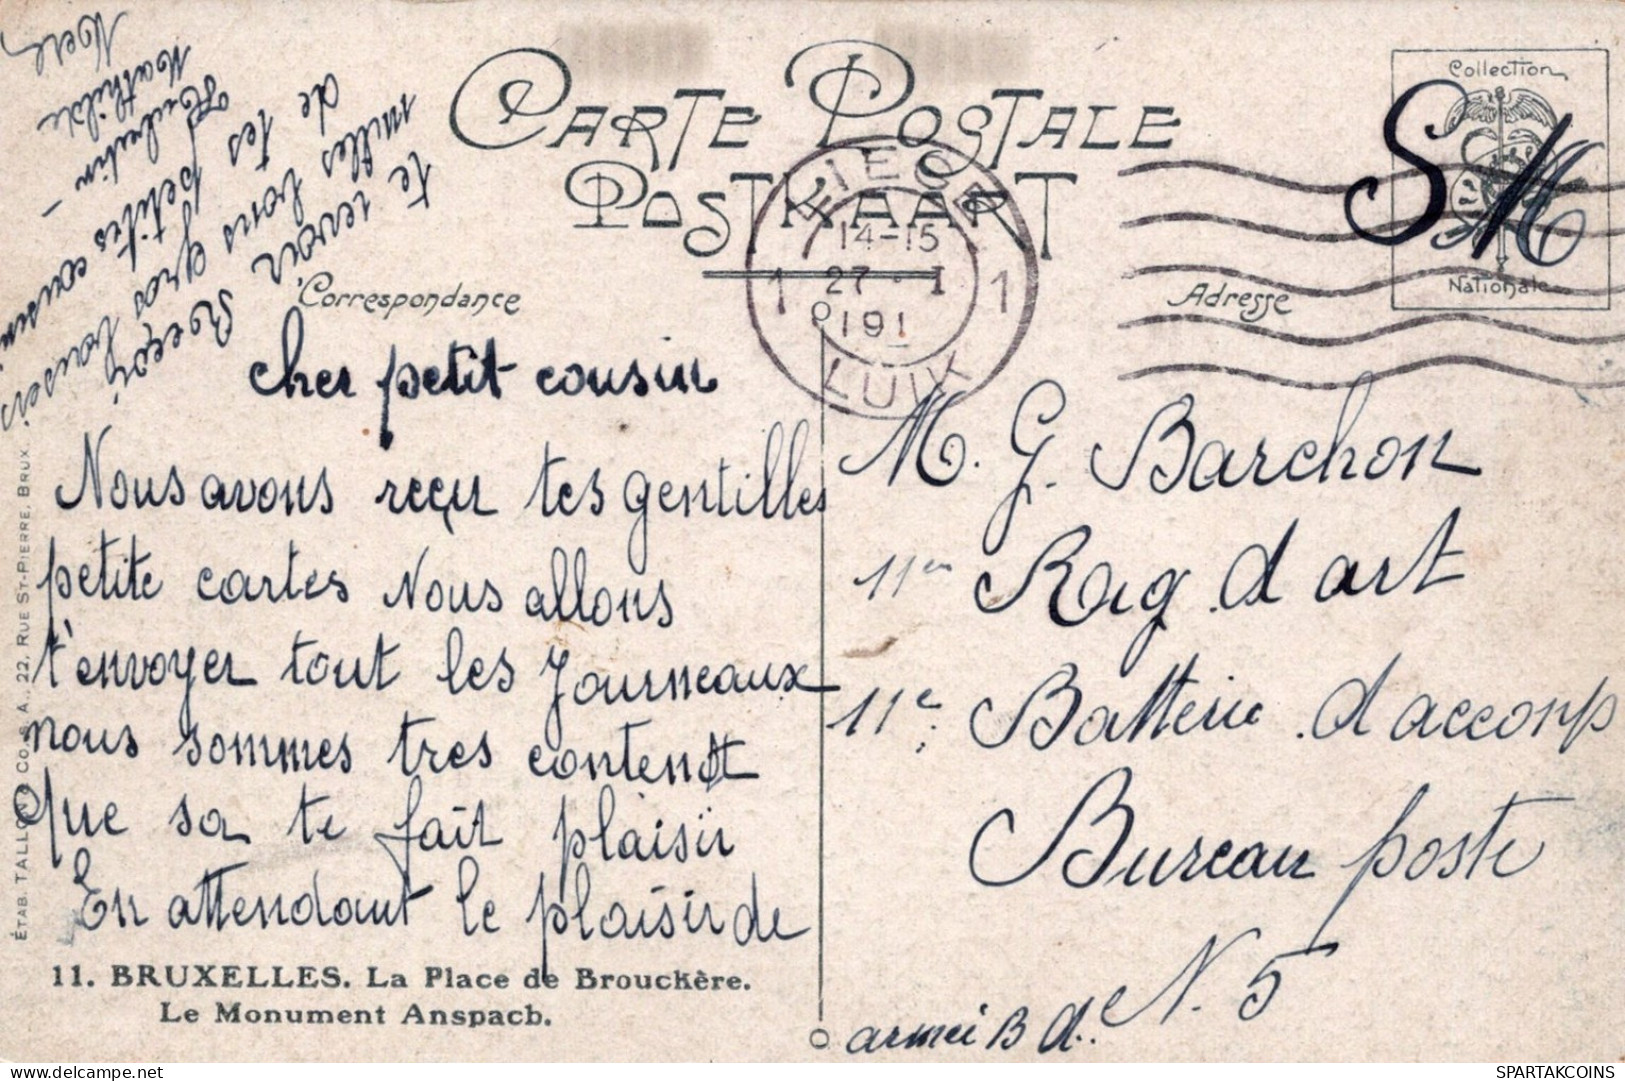 CARTE POSTALE
POSTKAART
Correspondance
Adresse
Collection
Nationale
SM
LIEGE
14-15
1 27 I 1
191
LUIK
cher petit cousin
Nous avons reçu tes gentilles
petite cartes Nous allons
t'envoyer tout les Journeaux
nous sommes tres content
Que sa te fait plaisir
En attendant le plaisir de
te revoir Reçoi
milles bons gros baiseis
de tes petites cousin
Hubertin -
Mathilde
M. G. Barchon
11em Rag. d art
11e Batterie d accomp
Bureau poste
N. 5
armei B d.
11. BRUXELLES. La Place de Brouckère.
Le Monument Anspach.
ÉTAB. TALLON & CO. S.A., 22, RUE ST-PIERRE, BRUX.
SPARTAKCOINS
www.delcampe.net